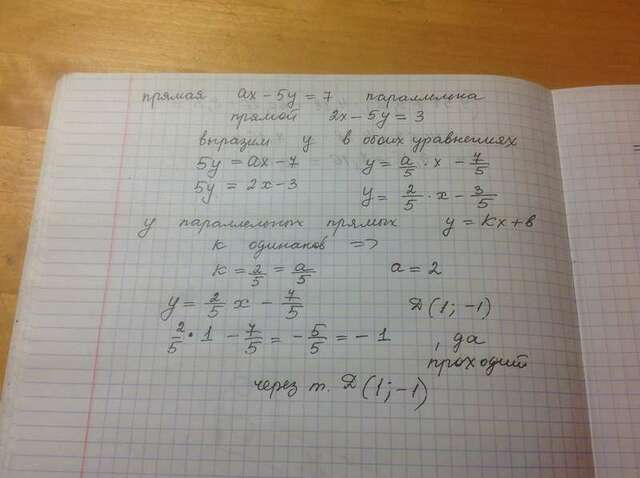 прямая ax - 5y = 7 параллельна
прямой 2x - 5y = 3
выразим y в обоих уравнениях
5y = ax - 7 y = a/5 · x - 7/5
5y = 2x - 3 y = 2/5 · x - 3/5
у параллельных прямых y = kx + в
k одинаков =>
k = 2/5 = a/5 a = 2
y = 2/5 x - 7/5 D(1; -1)
2/5 · 1 - 7/5 = - 5/5 = - 1 , да
проходит
через т. D(1; -1)